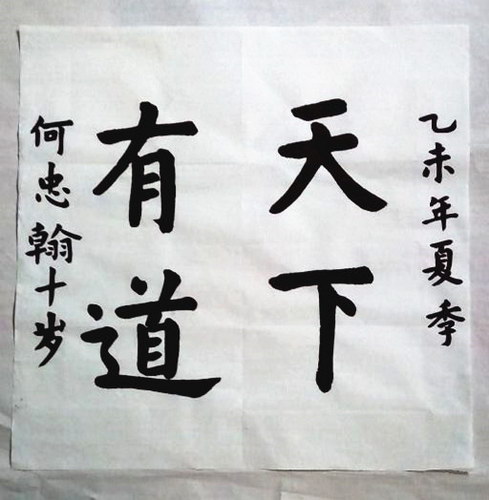 乙未年夏季
天下
有道
何忠翰十岁